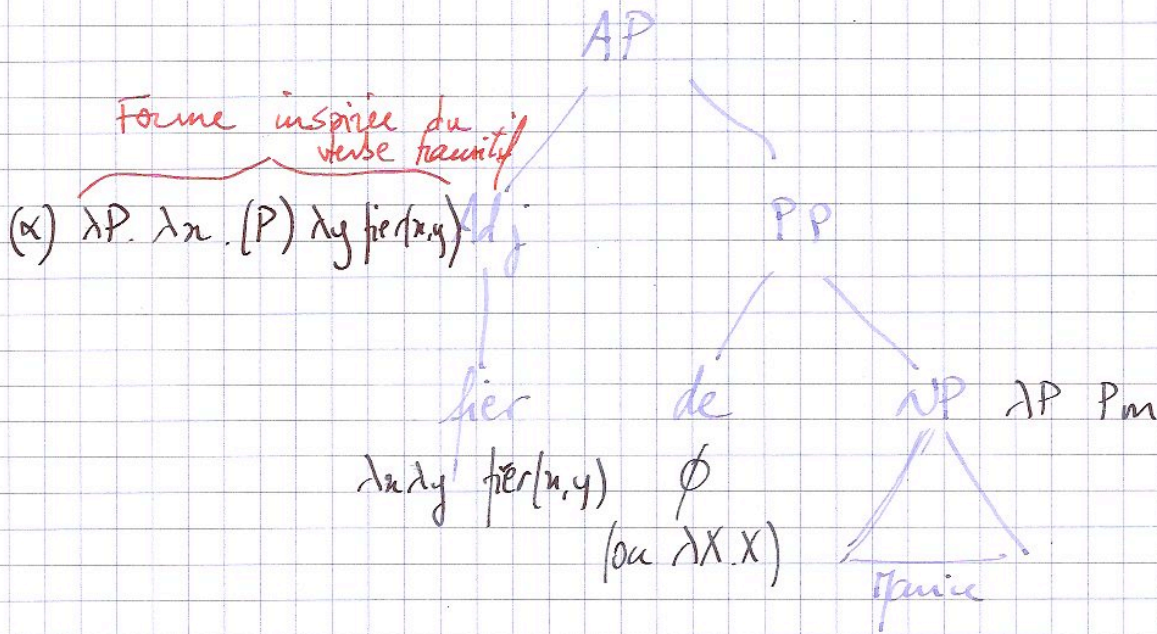 AP
Forme inspirée du
verbe transitif
(α) λP. λx. (P) λy fier(x,y) Adj
PP
fier de NP λP Pm
λx λy fier(x,y) ϕ
(ou λX.X)
Marie